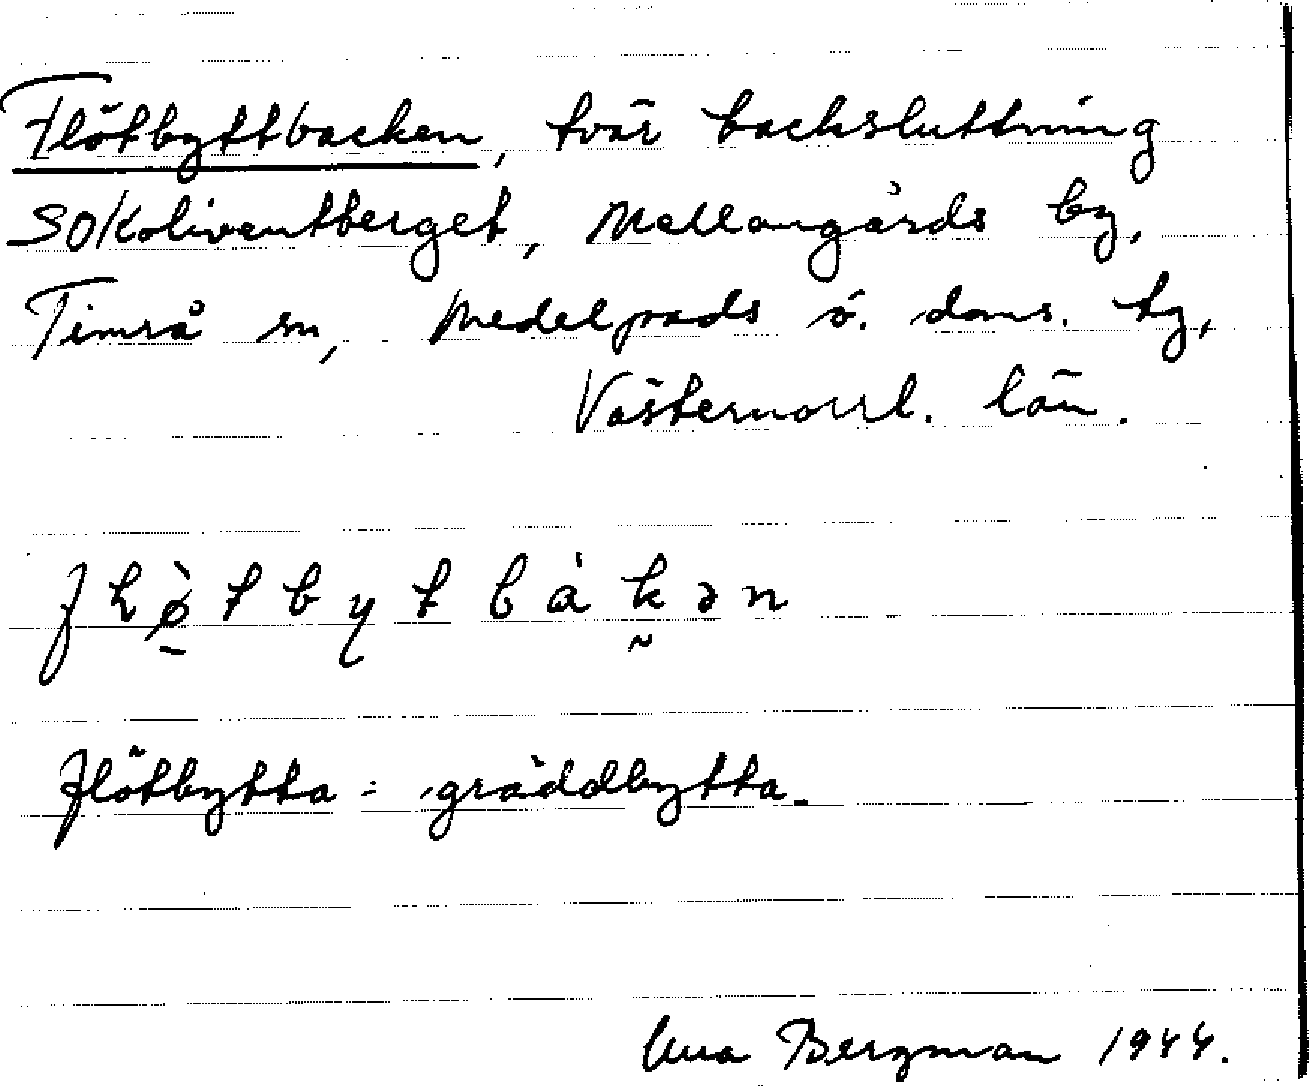 Flötbyttbacken, tvär backsluttning
SO Koliventberget, Mellangårds by,
Timrå sn, Medelpads ö. doms. tg,
Västernorrl. län.
fɬø̀tbytbàkən
flötbytta = gräddbytta.
Bergman 1944.